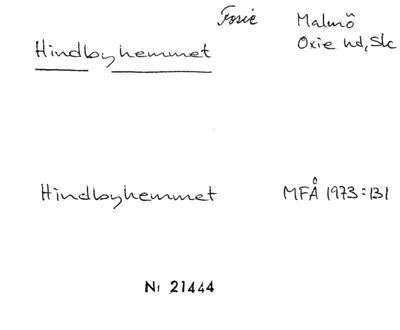 Fosie Malmö
Hindbyhemmet Oxie hd, Sk
Hindbyhemmet MFÅ 1973:131
Nr 21444